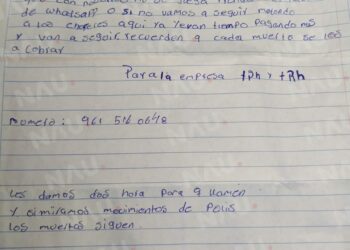 de whatsapp O si no vamos a seguir matando
a los choferes aqui ya llevan tiempo pagando nos
y van a seguir recuerden q cada muelto se los
a cobrar
Para la empresa
Numero: 961 516 0648
Les damos dos hora para q llamen
y si miramos movimientos de Polis
los mueltos siguen